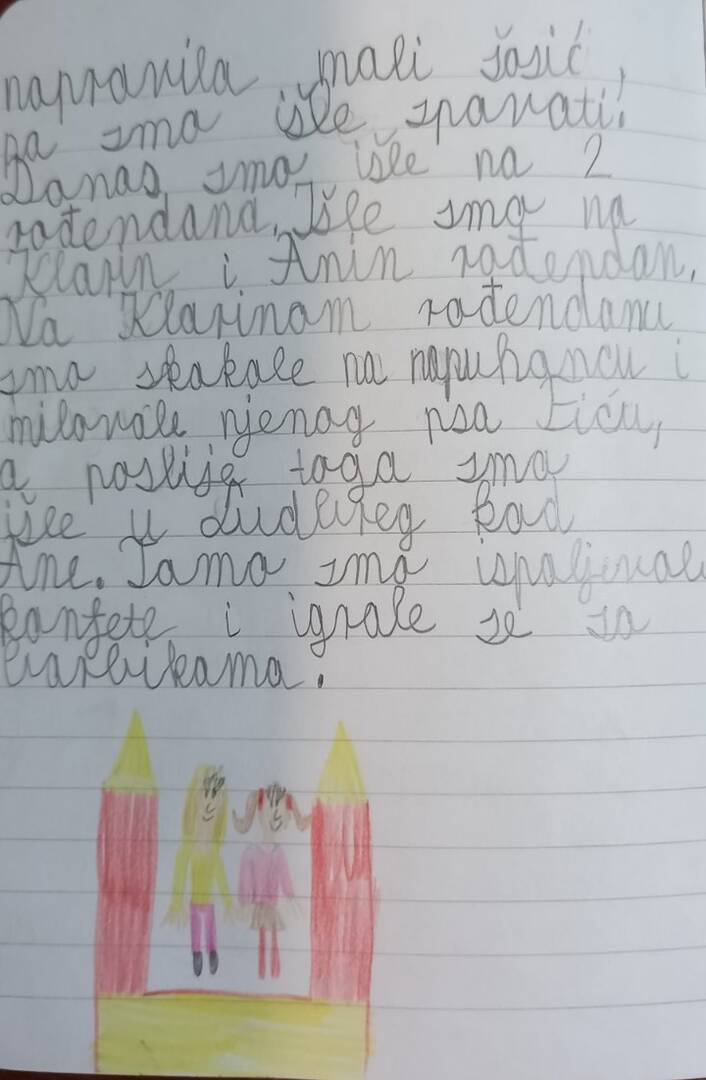 napravila mali šosić,
pa smo išle spavati.
Danas smo išle na 2
rođendana. Išle smo na
Klarin i Anin rođendan.
Na Klarinom rođendanu
smo skakale na napuhancu i
milovale njenog psa Tiću,
a poslije toga smo
išle u Ludbreg kod
Ane. Tamo smo ispaljivale
konfete i igrale se sa
barbikama.